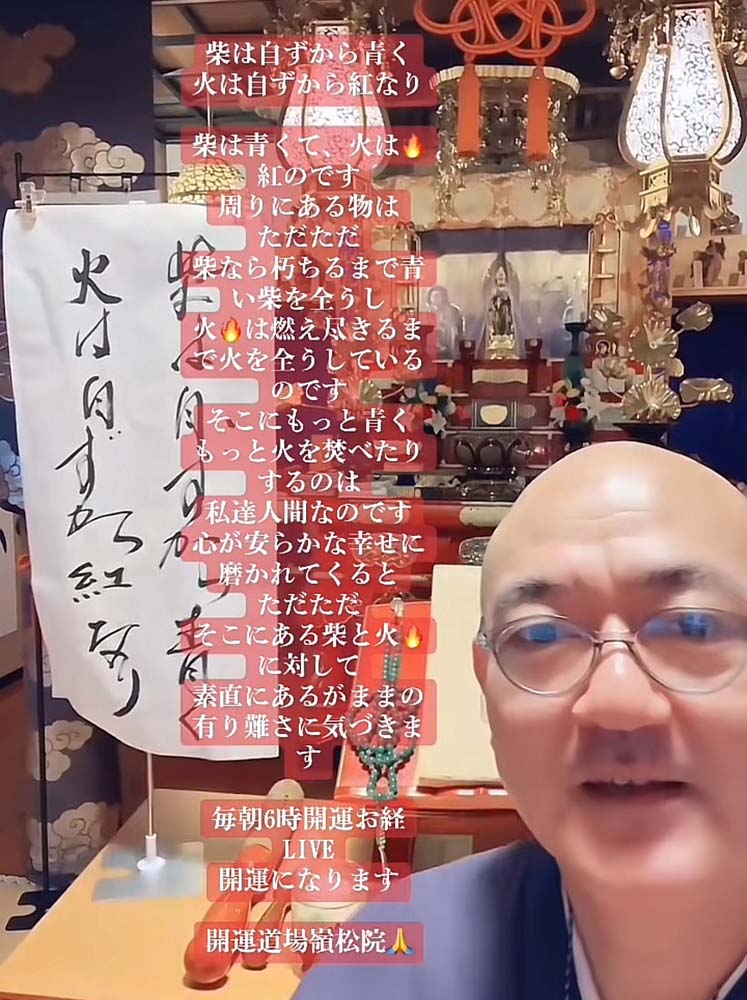 柴は自ずから青く
火は自ずから紅なり
柴は青くて、火は🔥
紅のです
周りにある物は
ただただ
柴なら朽ちるまで青
い柴を全うし
火🔥は燃え尽きるま
で火を全うしている
のです
そこにもっと青く
もっと火を焚べたり
するのは
私達人間なのです
心が安らかな幸せに
磨かれてくると
ただただ
そこにある柴と火🔥
に対して
素直にあるがままの
有り難さに気づきま
す
毎朝6時開運お経
LIVE
開運になります
開運道場嶺松院🙏
柴は自ずから青く
火は自ずから紅なり